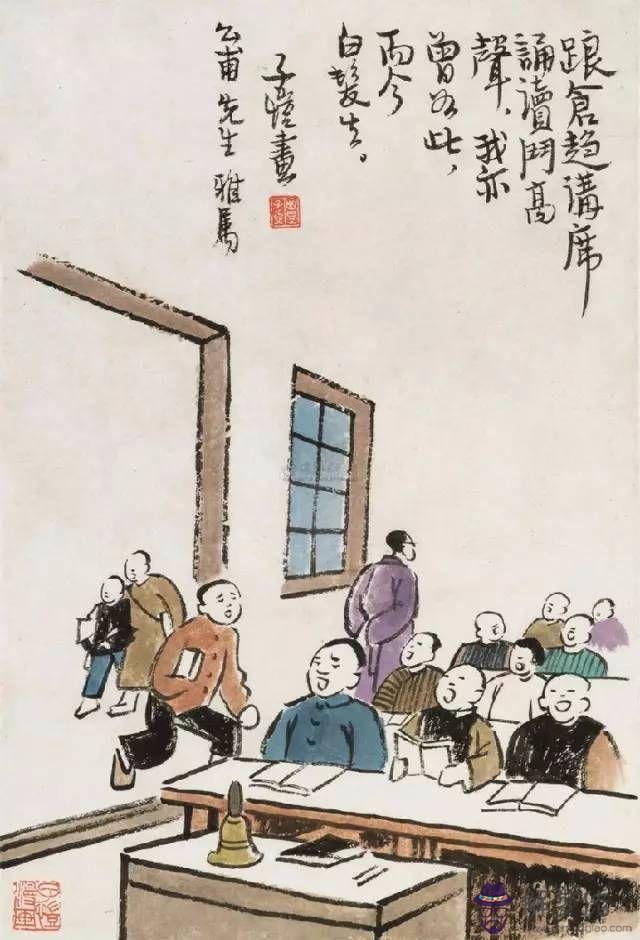 踉倉趨講席
誦讀鬥高
聲，我亦
曾如此，
而今
白髮生。
子愷畫
公甫先生 雅属